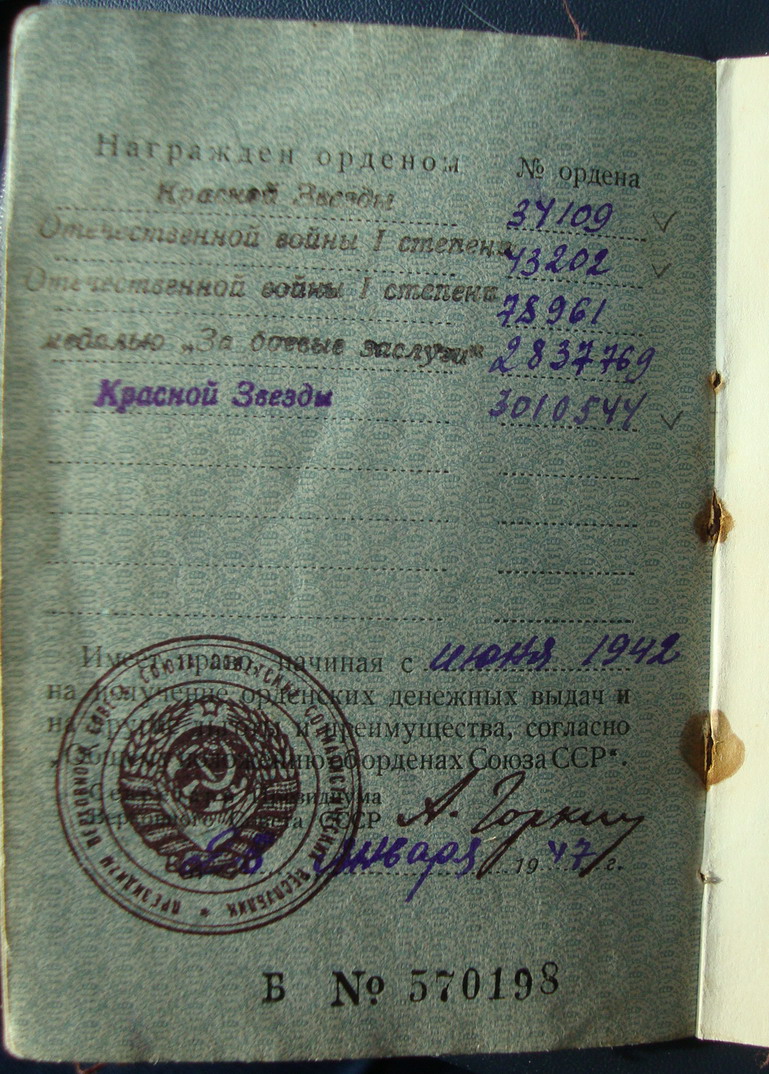 Награжден орденом № ордена
Красной Звезды 34109
Отечественной войны I степени 43202
Отечественной войны I степени 78961
медалью „За боевые заслуги“ 2837769
Красной Звезды 3010544
Имеет право, начиная с июня 1942
на получение орденских денежных выдач и
на другие льготы и преимущества, согласно
„Общему положению об орденах Союза ССР“.
Секретарь Президиума
Верховного Совета СССР А. Горкин
28 января 1947 г.
ПРЕЗИДИУМ ВЕРХОВНОГО СОВЕТА СОЮЗА СОВЕТСКИХ СОЦИАЛИСТИЧЕСКИХ РЕСПУБЛИК
Б № 570198